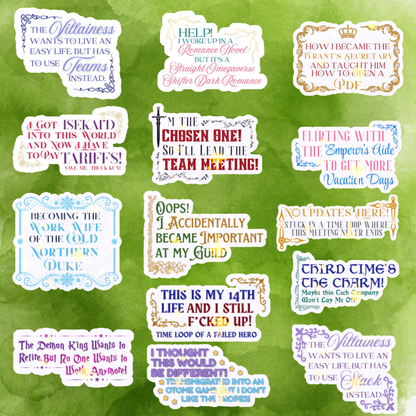 THE Villainess
WANTS TO LIVE AN
EASY LIFE, BUT HAS
TO USE Teams
INSTEAD
HELP!
I WOKE UP IN A
Romance Novel
BUT IT'S A
Straight Omegaverse
Shifter Dark Romance
HOW I BECAME THE
TYRANT'S SECRETARY
AND TAUGHT HIM
HOW TO OPEN A
PDF
I GOT ISEKAI'D
INTO THIS WORLD
AND NOW I HAVE
TO PAY TARIFFS!
SAVE ME, TRUCKKUN!
I'M THE
CHOSEN ONE!
SO I'LL LEAD THE
TEAM MEETING!
FLIRTING WITH
THE Emperor's Aide
TO GET MORE
Vacation Days
BECOMING THE
WORK WIFE
OF THE COLD
NORTHERN
DUKE
OOPS!
I ACCIDENTALLY
BECAME IMPORTANT
AT MY GUILD
NO UPDATES HERE!
STUCK IN A TIME LOOP WHERE
THIS MEETING NEVER ENDS
THIS IS MY 14TH
LIFE AND I STILL
F*CKED UP!
TIME LOOP OF A FAILED HERO
THIRD TIME'S
THE CHARM!
Maybe this Tech Company
Won't Lay Me Off
The Demon King Wants to
Retire, But No One Wants to
Work Anymore!
I THOUGHT
THIS WOULD
BE DIFFERENT!
I TRANSMIGRATED INTO AN
OTOME GAME BUT I DON'T
LIKE THE TROPES!
THE Villainess
WANTS TO LIVE AN
EASY LIFE, BUT HAS
TO USE Slack
INSTEAD